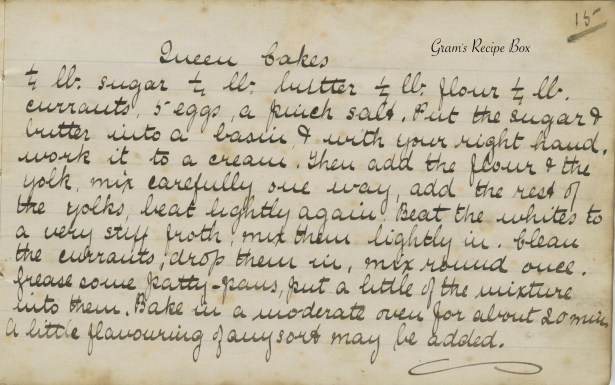 15
Gram's Recipe Box
Queen Cakes
¼ lb. sugar ¼ lb. butter ¼ lb. flour ¼ lb.
currants, 5 eggs, a pinch salt. Put the sugar &
butter into a basin, & with your right hand.
work it to a cream. Then add the flour & the
yolk, mix carefully one way, add the rest of
the yolks, beat lightly again. Beat the whites to
a very stiff froth, mix them lightly in. Clean
the currants, drop them in, mix round once.
Grease some patty-pans, put a little of the mixture
into them. Bake in a moderate oven for about 20 mins
A little flavouring of any sort may be added.